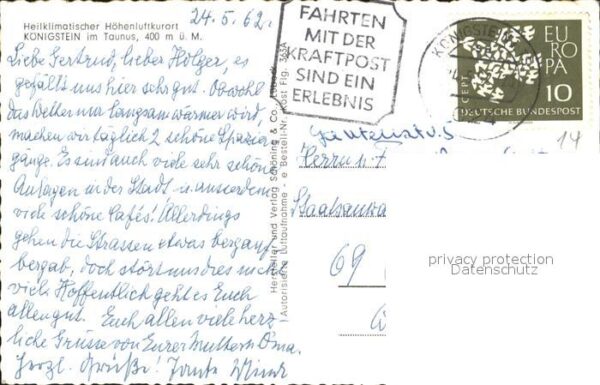 Heilklimatischer Höhenluftkurort
KÖNIGSTEIN im Taunus, 400 m ü. M.
24.5.62.
Liebe Gertrud, lieber Holger, es
gefällt uns hier sehr gut. Obwohl
das Wetter nur langsam wärmer wird,
machen wir täglich 2 schöne Spazier
gänge. Es sind auch viele sehr schöne
Anlagen in der Stadt u. ausserdem
viele schöne Cafés! Allerdings
gehen die Strassen etwas bergauf
bergab, doch stört uns dies nicht
viel. Hoffentlich geht es Euch
allen gut. Euch allen viele herz-
liche Grüsse von Eurer Mutter u. Oma.
Herzl. Grüße!
Hersteller und Verlag Schöning & Co.
Autorisierte Luftaufnahme - Bestell-Nr.
FAHRTEN
MIT DER
KRAFTPOST
SIND EIN
ERLEBNIS
KÖNIGSTEIN
EUROPA
CEPT
10
DEUTSCHE BUNDESPOST
14
Herrn u. F
Staatsanwa
69
privacy protection
Datenschutz